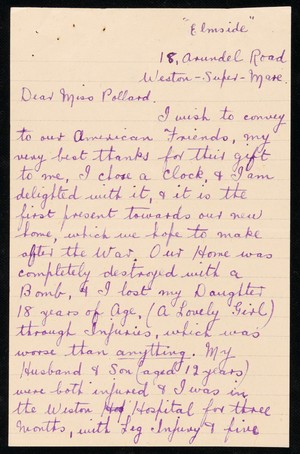 "Elmside"
18, Arundel Road
Weston-Super-Mare.
Dear Miss Pollard.
I wish to convey
to our American Friends, my
very best thanks for this gift
to me, I chose a Clock, & I am
delighted with it, & it is the
first present towards our new
home, which we hope to make
after the War. Our Home was
completely destroyed with a
Bomb, & I lost my Daughter
18 years of Age, (A Lovely Girl)
through Injuries, which was
worse than anything. My
Husband & Son (aged 12 years)
were both injured & I was in
the Weston Hospital for three
months, with Leg Injury & five